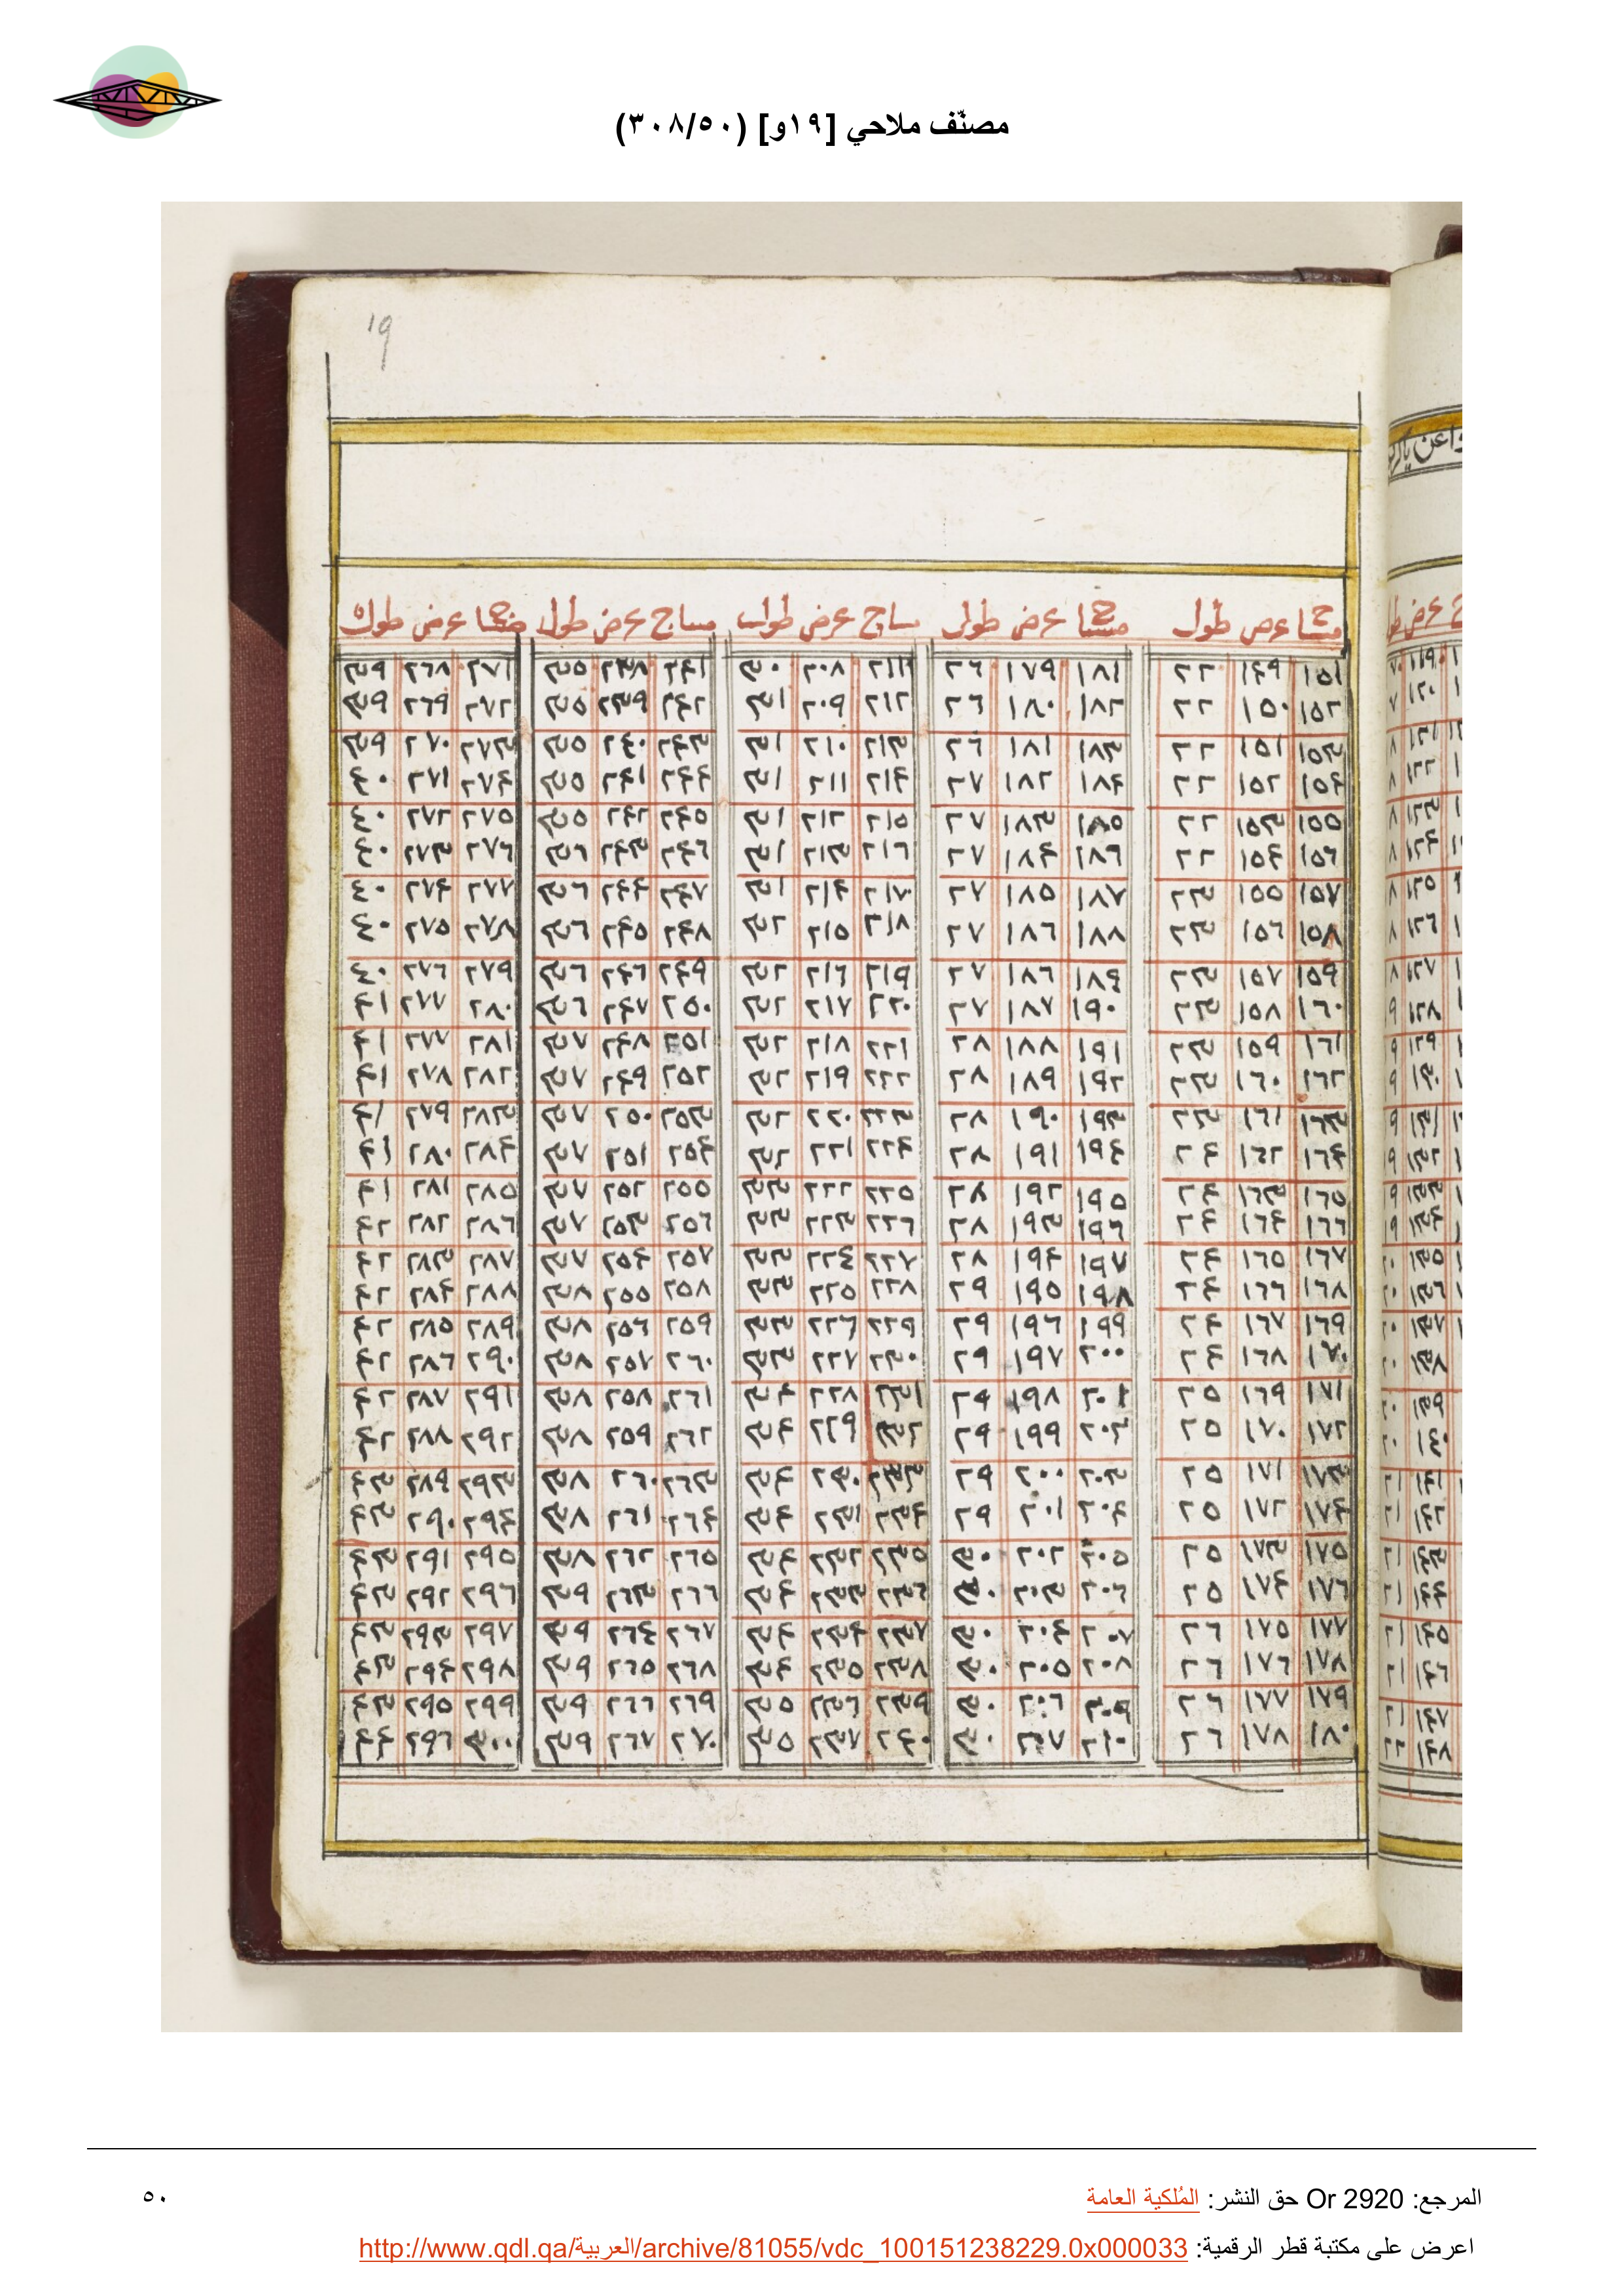 مصنّف ملاحي [١٩و] (٣٠٨/٥٠)
19
مساج عرض طول مساج عرض طول مساج عرض طول مساج عرض طول مساج عرض طول
١٥١ ١٤٩ ٢٢ ١٨١ ١٧٩ ٢٦ ٢١١ ٢٠٨ ٣٠ ٢٤١ ٢٣٨ ٣٥ ٢٧١ ٢٦٨ ٣٩
١٥٢ ١٥٠ ٢٢ ١٨٢ ١٨٠ ٢٦ ٢١٢ ٢٠٩ ٣١ ٢٤٢ ٢٣٩ ٣٥ ٢٧٢ ٢٦٩ ٣٩
١٥٣ ١٥١ ٢٢ ١٨٣ ١٨١ ٢٦ ٢١٣ ٢١٠ ٣١ ٢٤٣ ٢٤٠ ٣٥ ٢٧٣ ٢٧٠ ٣٩
١٥٤ ١٥٢ ٢٢ ١٨٤ ١٨٢ ٢٧ ٢١٤ ٢١١ ٣١ ٢٤٤ ٢٤١ ٣٥ ٢٧٤ ٢٧١ ٤٠
١٥٥ ١٥٣ ٢٢ ١٨٥ ١٨٣ ٢٧ ٢١٥ ٢١٢ ٣١ ٢٤٥ ٢٤٢ ٣٥ ٢٧٥ ٢٧٢ ٤٠
١٥٦ ١٥٤ ٢٢ ١٨٦ ١٨٤ ٢٧ ٢١٦ ٢١٣ ٣١ ٢٤٦ ٢٤٣ ٣٦ ٢٧٦ ٢٧٣ ٤٠
١٥٧ ١٥٥ ٢٣ ١٨٧ ١٨٥ ٢٧ ٢١٧ ٢١٤ ٣١ ٢٤٧ ٢٤٤ ٣٦ ٢٧٧ ٢٧٤ ٤٠
١٥٨ ١٥٦ ٢٣ ١٨٨ ١٨٦ ٢٧ ٢١٨ ٢١٥ ٣٢ ٢٤٨ ٢٤٥ ٣٦ ٢٧٨ ٢٧٥ ٤٠
١٥٩ ١٥٧ ٢٣ ١٨٩ ١٨٦ ٢٧ ٢١٩ ٢١٦ ٣٢ ٢٤٩ ٢٤٦ ٣٦ ٢٧٩ ٢٧٦ ٤٠
١٦٠ ١٥٨ ٢٣ ١٩٠ ١٨٧ ٢٧ ٢٢٠ ٢١٧ ٣٢ ٢٥٠ ٢٤٧ ٣٦ ٢٨٠ ٢٧٧ ٤١
١٦١ ١٥٩ ٢٣ ١٩١ ١٨٨ ٢٨ ٢٢١ ٢١٨ ٣٢ ٢٥١ ٢٤٨ ٣٧ ٢٨١ ٢٧٧ ٤١
١٦٢ ١٦٠ ٢٣ ١٩٢ ١٨٩ ٢٨ ٢٢٢ ٢١٩ ٣٢ ٢٥٢ ٢٤٩ ٣٧ ٢٨٢ ٢٧٨ ٤١
١٦٣ ١٦١ ٢٣ ١٩٣ ١٩٠ ٢٨ ٢٢٣ ٢٢٠ ٣٢ ٢٥٣ ٢٥٠ ٣٧ ٢٨٣ ٢٧٩ ٤١
١٦٤ ١٦٢ ٢٤ ١٩٤ ١٩١ ٢٨ ٢٢٤ ٢٢١ ٣٢ ٢٥٤ ٢٥١ ٣٧ ٢٨٤ ٢٨٠ ٤١
١٦٥ ١٦٣ ٢٤ ١٩٥ ١٩٢ ٢٨ ٢٢٥ ٢٢٢ ٣٣ ٢٥٥ ٢٥٢ ٣٧ ٢٨٥ ٢٨١ ٤١
١٦٦ ١٦٤ ٢٤ ١٩٦ ١٩٣ ٢٨ ٢٢٦ ٢٢٣ ٣٣ ٢٥٦ ٢٥٣ ٣٧ ٢٨٦ ٢٨٢ ٤٢
١٦٧ ١٦٥ ٢٤ ١٩٧ ١٩٤ ٢٨ ٢٢٧ ٢٢٤ ٣٣ ٢٥٧ ٢٥٤ ٣٧ ٢٨٧ ٢٨٣ ٤٢
١٦٨ ١٦٦ ٢٤ ١٩٨ ١٩٥ ٢٩ ٢٢٨ ٢٢٥ ٣٣ ٢٥٨ ٢٥٥ ٣٨ ٢٨٨ ٢٨٤ ٤٢
١٦٩ ١٦٧ ٢٤ ١٩٩ ١٩٦ ٢٩ ٢٢٩ ٢٢٦ ٣٣ ٢٥٩ ٢٥٦ ٣٨ ٢٨٩ ٢٨٥ ٤٢
١٧٠ ١٦٨ ٢٤ ٢٠٠ ١٩٧ ٢٩ ٢٣٠ ٢٢٧ ٣٣ ٢٦٠ ٢٥٧ ٣٨ ٢٩٠ ٢٨٦ ٤٢
١٧١ ١٦٩ ٢٥ ٢٠١ ١٩٨ ٢٩ ٢٣١ ٢٢٨ ٣٤ ٢٦١ ٢٥٨ ٣٨ ٢٩١ ٢٨٧ ٤٢
١٧٢ ١٧٠ ٢٥ ٢٠٢ ١٩٩ ٢٩ ٢٣٢ ٢٢٩ ٣٤ ٢٦٢ ٢٥٩ ٣٨ ٢٩٢ ٢٨٨ ٤٢
١٧٣ ١٧١ ٢٥ ٢٠٣ ٢٠٠ ٢٩ ٢٣٣ ٢٣٠ ٣٤ ٢٦٣ ٢٦٠ ٣٨ ٢٩٣ ٢٨٩ ٤٣
١٧٤ ١٧٢ ٢٥ ٢٠٤ ٢٠١ ٢٩ ٢٣٤ ٢٣١ ٣٤ ٢٦٤ ٢٦١ ٣٨ ٢٩٤ ٢٩٠ ٤٣
١٧٥ ١٧٣ ٢٥ ٢٠٥ ٢٠٢ ٣٠ ٢٣٥ ٢٣٢ ٣٤ ٢٦٥ ٢٦٢ ٣٨ ٢٩٥ ٢٩١ ٤٣
١٧٦ ١٧٤ ٢٥ ٢٠٦ ٢٠٣ ٣٠ ٢٣٦ ٢٣٣ ٣٤ ٢٦٦ ٢٦٣ ٣٩ ٢٩٦ ٢٩٢ ٤٣
١٧٧ ١٧٥ ٢٦ ٢٠٧ ٢٠٤ ٣٠ ٢٣٧ ٢٣٤ ٣٤ ٢٦٧ ٢٦٤ ٣٩ ٢٩٧ ٢٩٣ ٤٣
١٧٨ ١٧٦ ٢٦ ٢٠٨ ٢٠٥ ٣٠ ٢٣٨ ٢٣٥ ٣٤ ٢٦٨ ٢٦٥ ٣٩ ٢٩٨ ٢٩٤ ٤٣
١٧٩ ١٧٧ ٢٦ ٢٠٩ ٢٠٦ ٣٠ ٢٣٩ ٢٣٦ ٣٥ ٢٦٩ ٢٦٦ ٣٩ ٢٩٩ ٢٩٥ ٤٣
١٨٠ ١٧٨ ٢٦ ٢١٠ ٢٠٧ ٣٠ ٢٤٠ ٢٣٧ ٣٥ ٢٧٠ ٢٦٧ ٣٩ ٣٠٠ ٢٩٦ ٤٤
المرجع: Or 2920 حق النشر: المُلكية العامة
٥٠
اعرض على مكتبة قطر الرقمية: http://www.qdl.qa/العربية/archive/81055/vdc_100151238229.0x000033